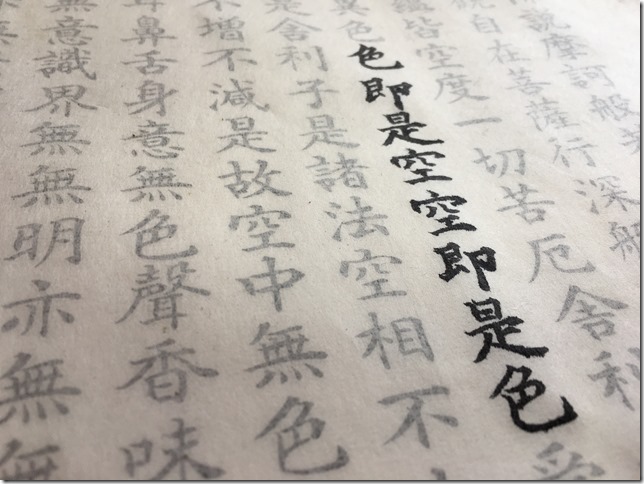 説摩訶般若
自在菩薩行深般
蘊皆空度一切苦厄舍利
色色即是空空即是色受
是舍利子是諸法空相不
不增不減是故空中無色
耳鼻舌身意無色聲香味
無意識界無無明亦無無